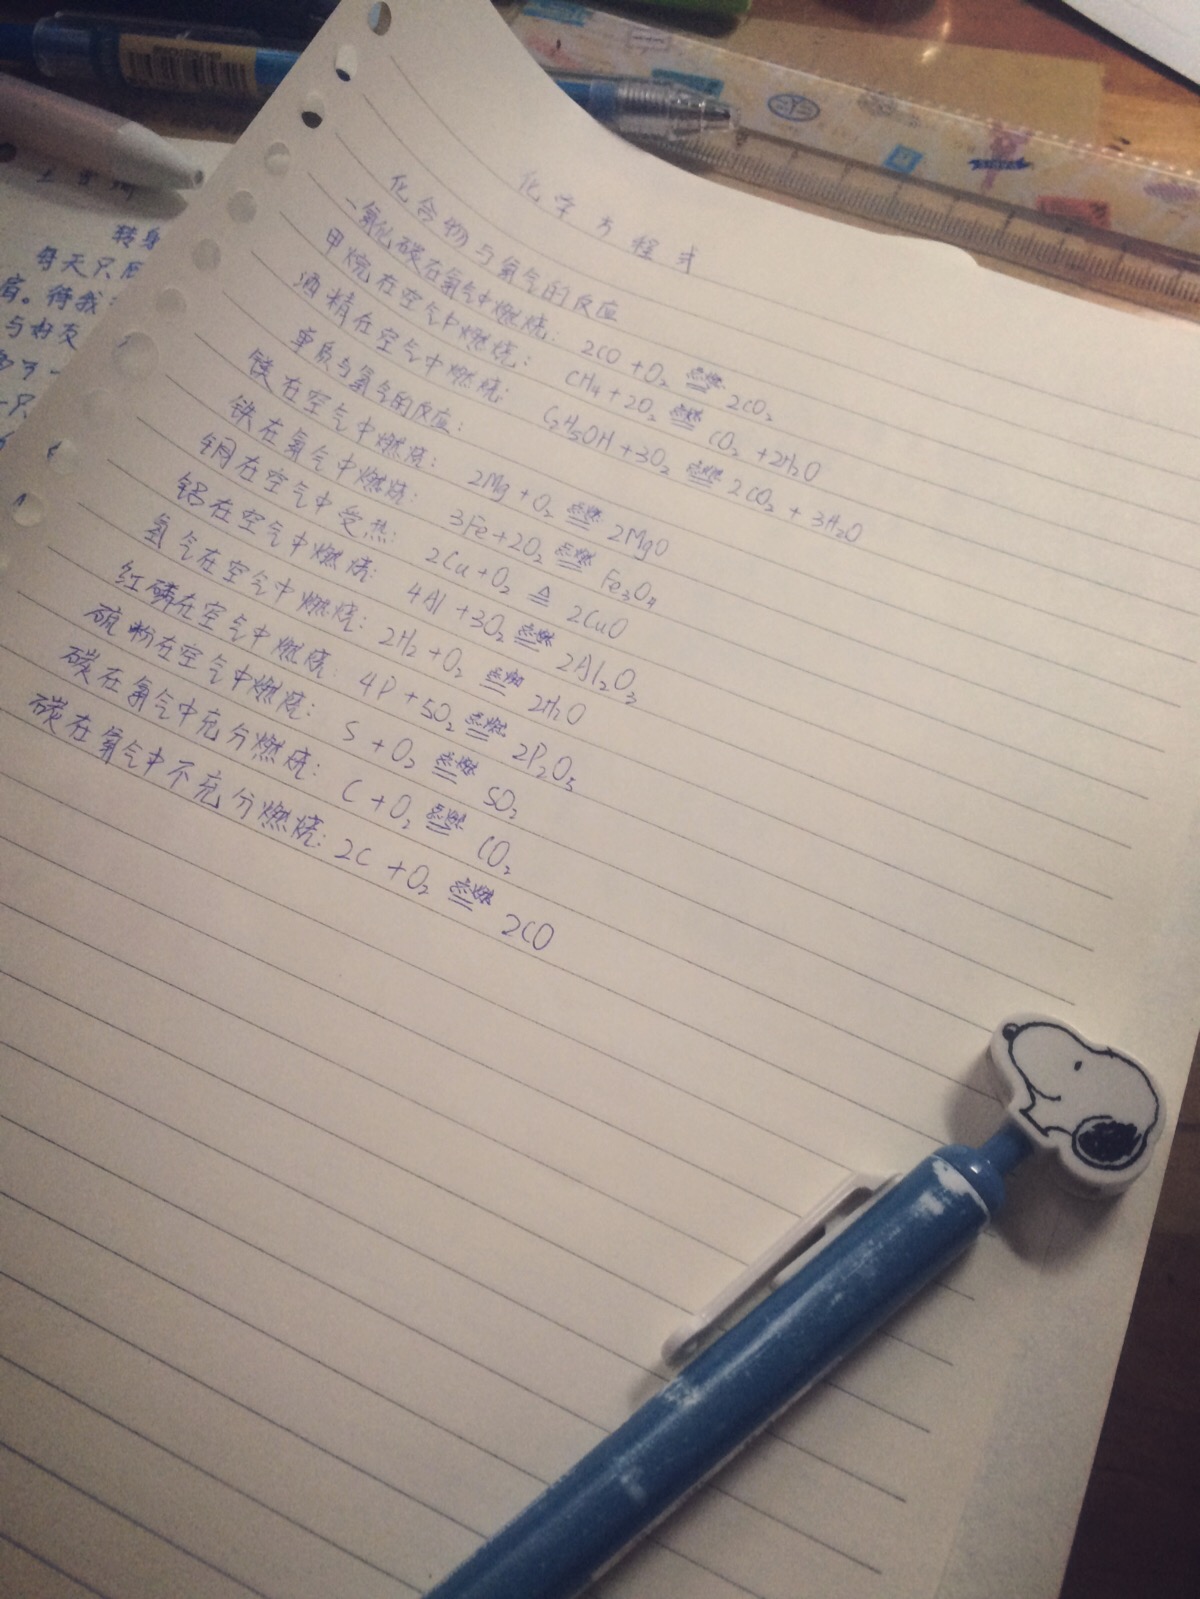 化学方程式
化合物与氧气的反应
一氧化碳在氧气中燃烧: 2CO + O₂ 点燃 2CO₂
甲烷在空气中燃烧: CH₄ + 2O₂ 点燃 CO₂ + 2H₂O
酒精在空气中燃烧: C₂H₅OH + 3O₂ 点燃 2CO₂ + 3H₂O
单质与氧气的反应:
镁在空气中燃烧: 2Mg + O₂ 点燃 2MgO
铁在氧气中燃烧: 3Fe + 2O₂ 点燃 Fe₃O₄
铜在空气中受热: 2Cu + O₂ △ 2CuO
铝在空气中燃烧: 4Al + 3O₂ 点燃 2Al₂O₃
氢气在空气中燃烧: 2H₂ + O₂ 点燃 2H₂O
红磷在空气中燃烧: 4P + 5O₂ 点燃 2P₂O₅
硫粉在空气中燃烧: S + O₂ 点燃 SO₂
碳在氧气中充分燃烧: C + O₂ 点燃 CO₂
碳在氧气中不充分燃烧: 2C + O₂ 点燃 2CO
转身
每天只
肩。待我
与好友